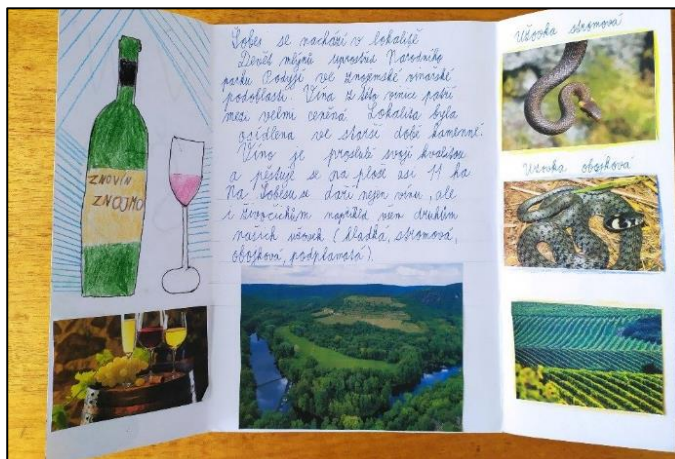 ZNOVÍN
ZNOJMO
Šobes se nachází v lokalitě
Devět mlýnů uprostřed Národního
parku Podyjí ve Znojemské vinařské
podoblasti. Vína z této vinice patří
mezi velmi ceněná. Lokalita byla
osídlena ve starší době kamenné.
Víno je proslulé svojí kvalitou
a pěstuje se na ploše asi 11 ha
Na Šobesu se daří nejen vínu, ale
i živočichům například všem druhům
našich užovek (hladká, stromová,
obojková, podplamatá).
Užovka stromová
Užovka obojková